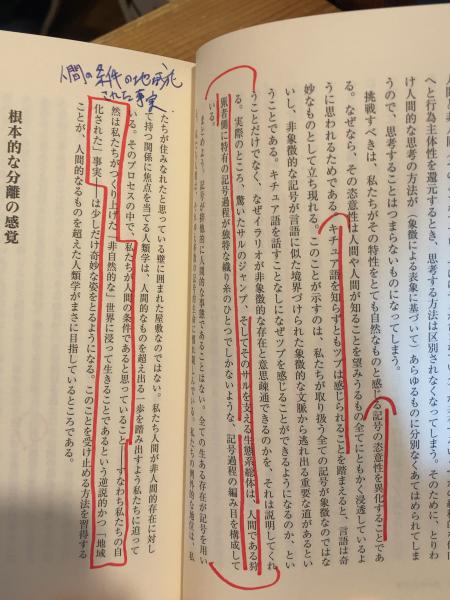 へと行為主体性を還元するとき、思考する方法は区別されなくなってしまう。そのために、とりわ
け人間的な思考の方が（象徴による表象に基づいて）あらゆるものに分別なくあてはめられてしま
うので、思考することはつまらないものになってしまう。
挑戦すべきは、私たちがその特性をとても自然なものと感じる記号の恣意性を異化することであ
る。なぜなら、その恣意性は人間や人間が知ることを望みうるもの全てにともかく浸透しているよ
うに思われるためである。キチュア語を知らずともツプは感じられることを踏まえると、言語は奇
妙なものとして立ち現れる。このことが示すのは、私たちが取り扱う全ての記号が象徴なのではな
いし、非象徴的な記号が言語に似た境界づけられた象徴的な文脈から逃れ出る重要な道があるとい
うことである。キチュア語を話すことなしになぜツプを感じることができるようになるのか、とい
うことだけでなく、なぜイラリオが非象徴的な存在と意思疎通できるのかを、それは説明してくれ
る。実際のところ、驚いたサルのジャンプ、そしてそのサルを支える生態系総体は、人間である狩
猟者側に特有の記号過程が独特な織り糸のひとつでしかないような、記号過程の編み目を構成して
いる。
まとめよう。記号が排他的に人間的な事態であることはない。全ての生ある存在が記号を用い
人間の条件の地域化
された事実
たちが住みなれたと思っている壁に囲まれた屋敷なのではない。私たち人間が非人間的存在に対し
て持つ関係に焦点を当てる人類学は、人間的なものを超え出る一歩を踏み出すよう私たちに迫って
いる。そのプロセスの中で、私たちが人間の条件であると思っていること――すなわち私たちの自
然は私たちがつくり上げた「非自然的な」世界に浸って生きることであるという逆説的かつ「地域
化された」事実――は少しだけ奇妙な姿をとるようになる。このことを受け止める方法を習得する
ことが、人間的なるものを超えた人類学がまさに目指しているところである。
根本的な分離の感覚